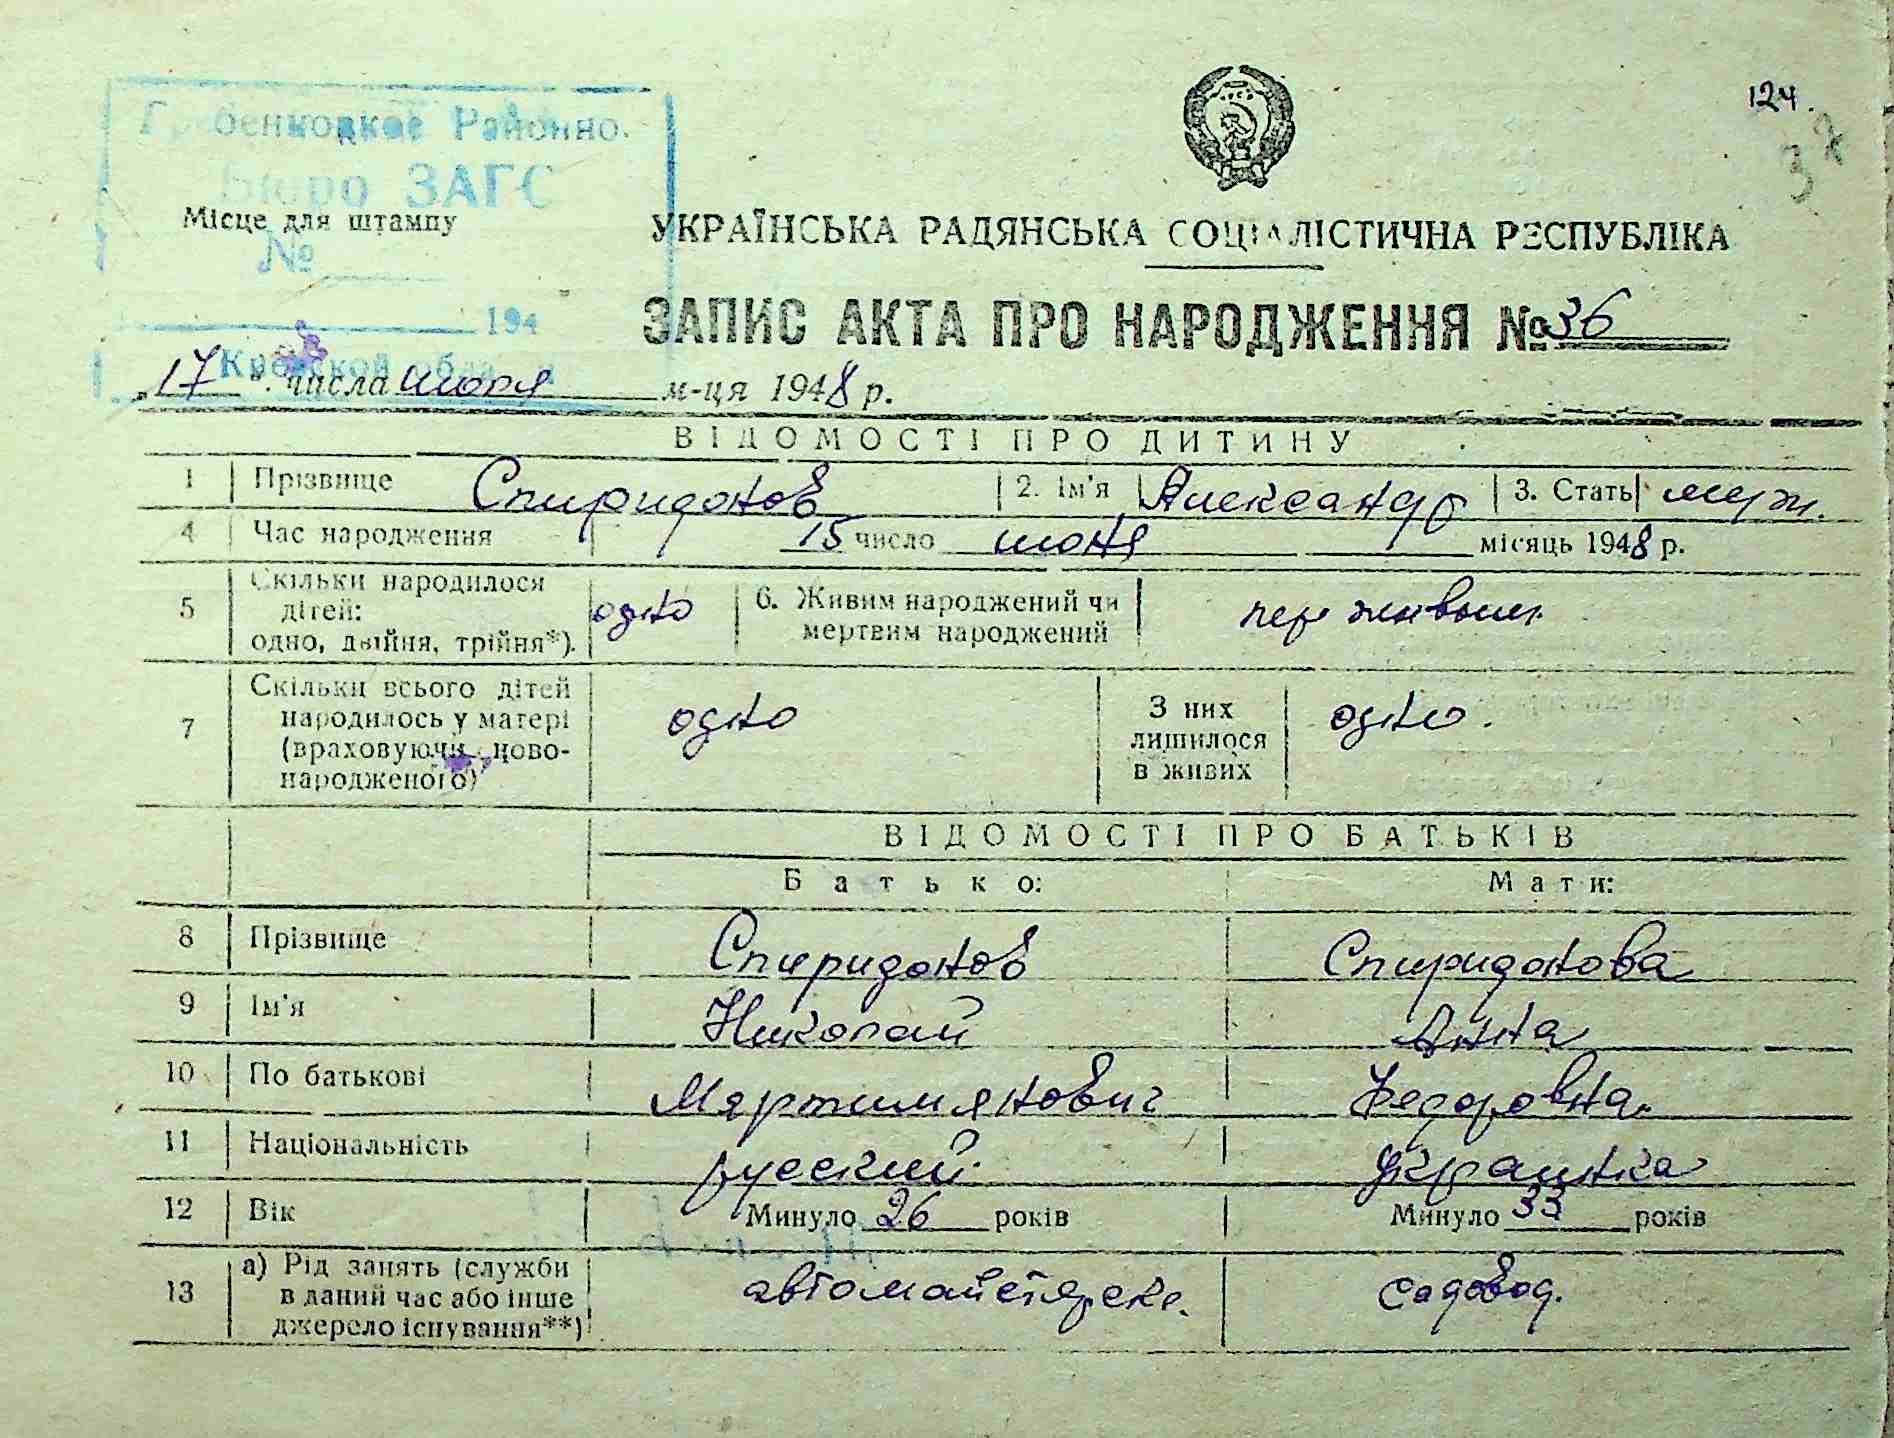 124.
37
Районно.
Бюро ЗАГС
Місце для штампу
№
194
УКРАЇНСЬКА РАДЯНСЬКА СОЦІАЛІСТИЧНА РЕСПУБЛІКА
ЗАПИС АКТА ПРО НАРОДЖЕННЯ № 36
„17“ числа июля м-ця 1948 р.
ВІДОМОСТІ ПРО ДИТИНУ
1 Прізвище Спиридонов 2. Ім'я Александр 3. Стать муж.
4 Час народження 15 число июня місяць 1948 р.
5 Скільки народилося дітей: одно, двійня, трійня*). одно 6. Живим народжений чи мертвим народжений живым
7 Скільки всього дітей народилось у матері (враховуючи ново-народженого) одно З них лишилося в живих одно.
ВІДОМОСТІ ПРО БАТЬКІВ
Батько: Мати:
8 Прізвище Спиридонов Спиридонова
9 Ім'я Николай Анна
10 По батькові Мартимянович Федоровна
11 Національність русский Украинка
12 Вік Минуло 26 років Минуло 33 років
13 а) Рід занять (служби в даний час або інше джерело існування**) садовод.